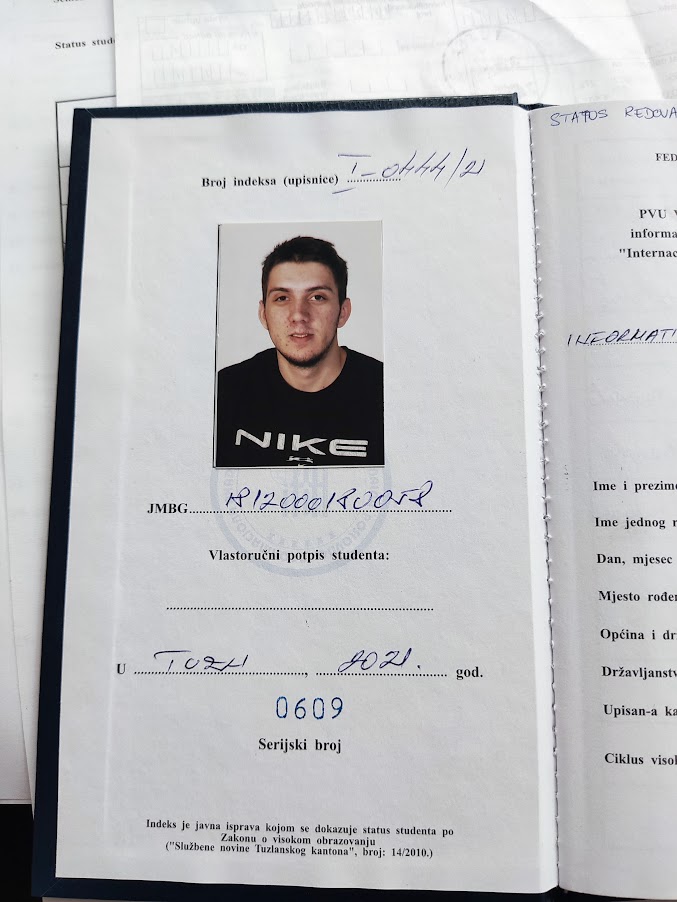 Status stud
Broj indeksa (upisnice) I-0444/21
NIKE
JMBG
Vlastoručni potpis studenta:
U TUZLI, 2021. god.
0609
Serijski broj
Indeks je javna isprava kojom se dokazuje status studenta po
Zakonu o visokom obrazovanju
("Službene novine Tuzlanskog kantona", broj: 14/2010.)
STATUS REDOVA
FED
PVU V
informa
"Internac
INFORMATI
Ime i prezime
Ime jednog r
Dan, mjesec
Mjesto rođen
Općina i dr
Državljanstv
Upisan-a ka
Ciklus visok